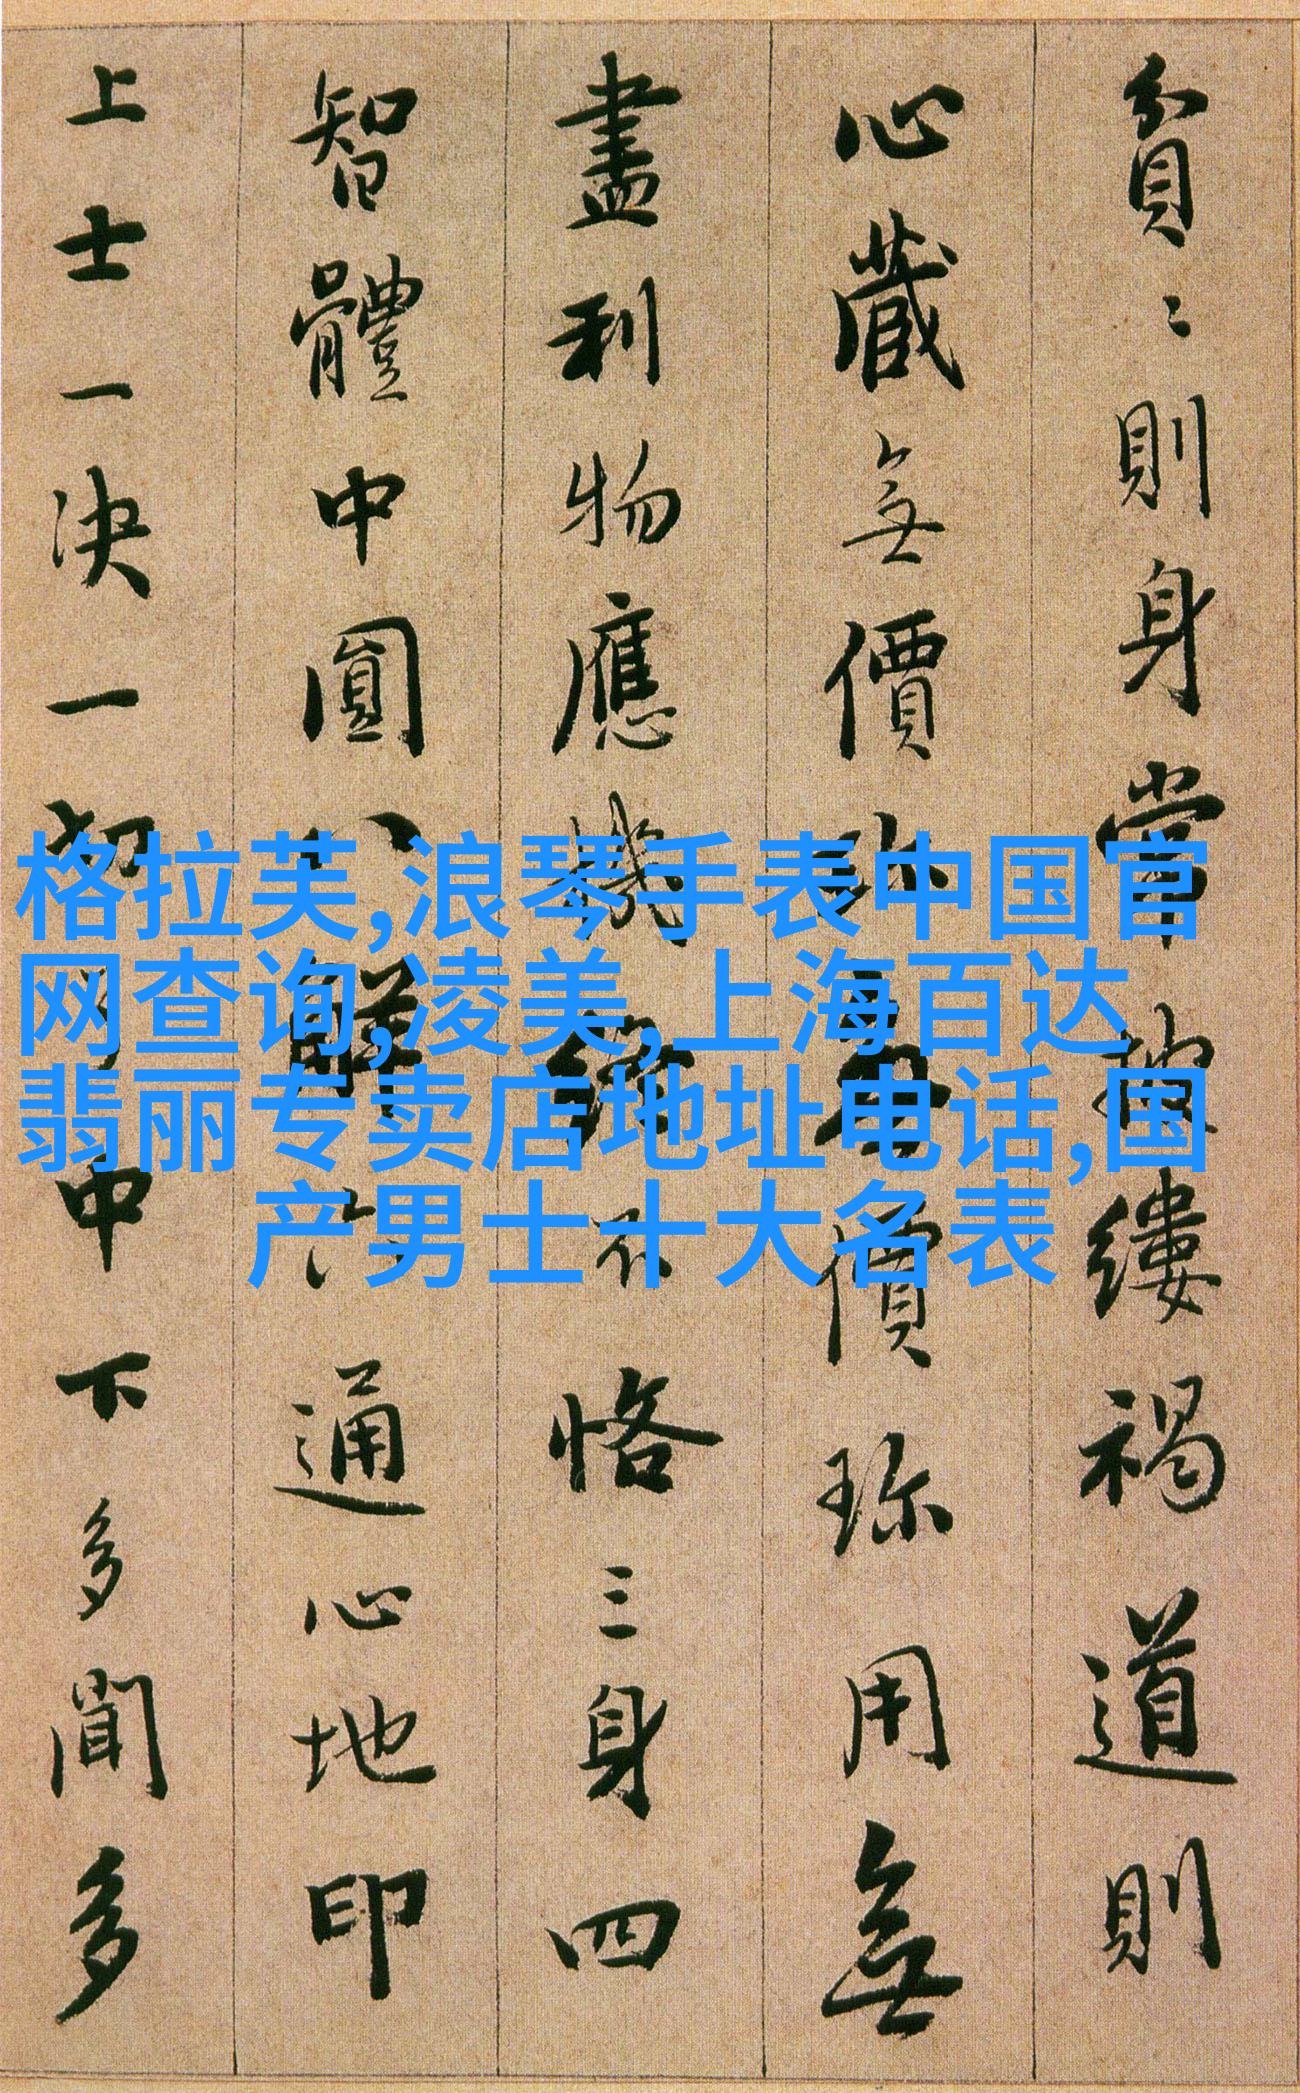 貧〻則身常披縷褐道則
心藏無價珎無價珎用無
盡利物應機終不恪三身四
智體中圓八解六通心地印
上士一决一切了中下多聞多
格拉芙,浪琴手表中国官
网查询,凌美,上海百达
翡丽专卖店地址电话,国
产男士十大名表